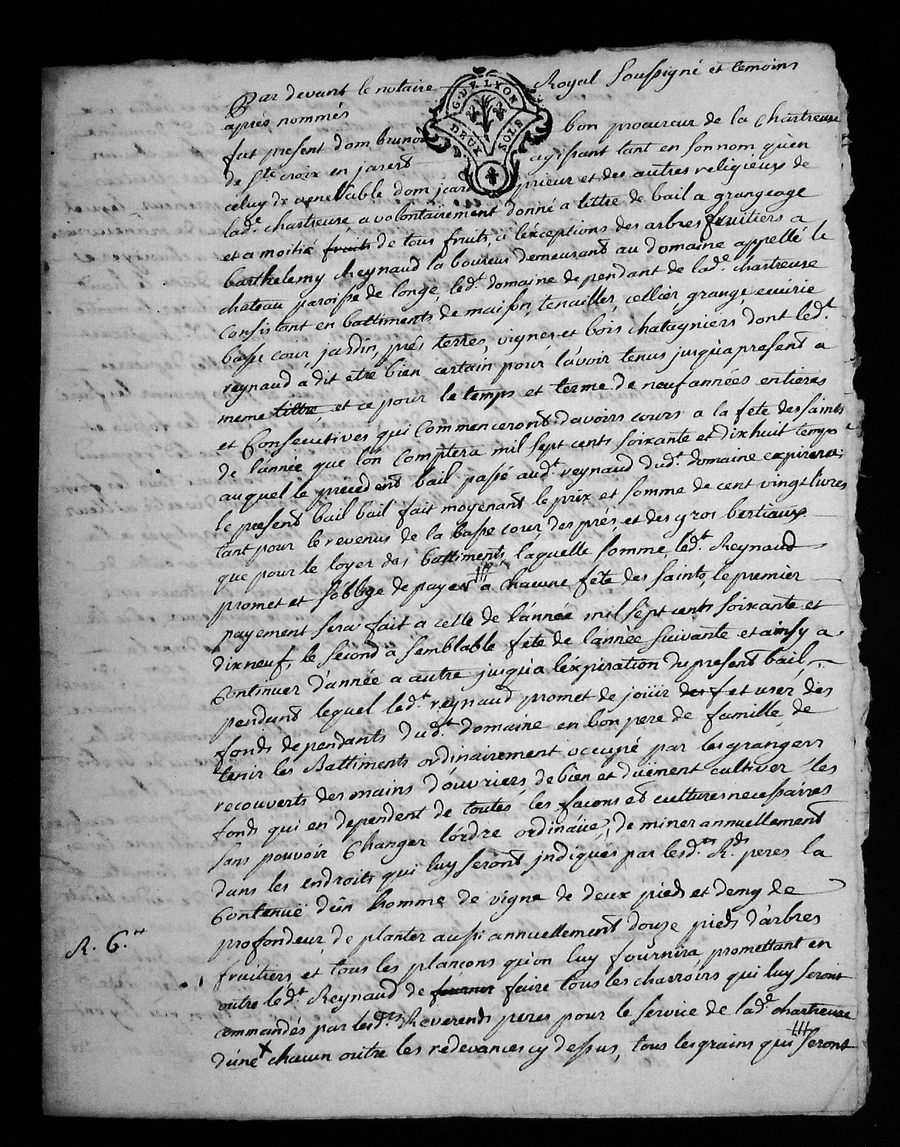 Par devant le notaire Royal Soussigné et temoins
apres nommés
G. DE LYON
DEUX SOLS
fut present dom bruno bon procureur de la chartreuse
de Ste croix en jarest agissant tant en son nom qu'en
celuy de venerable dom jean prieur et des autres religieux de
lade chartreuse a volontairement donné a tittre de bail a grangeage
et a moitié fruits de tous fruits, a l'exceptions des arbres fruitiers a
barthelemy Reynaud laboureur demeurant au domaine appellé le
chateau paroisse de longe, ledt domaine dependant de lade chartreuse
Consistant en battiments de maison, tenailler, cellier grange, ecurie
basse cour, jardin, prés terres, vignes et bois chatagniers dont ledt
reynaud a dit etre bien certain pour l'avoir tenus jusqu'a present a
meme tittre, et ce pour le temps et terme de neuf années entieres
et Consecutives qui Commenceront d'avoirs cours a la fête des saints
de l'année que l'on Comptera mil sept cents soixante et dix huit temps
auquel le precedent bail passé audt reynaud dudt domaine expirera
le present bail bail fait moyenant le prix et somme de cent vingt livres
tant pour le revenus de la basse cour, des prés et des gros bestiaux
que pour le loyer des battiments, laquelle somme, ledt Reynaud
promet et s'oblige de payer a Chacune fête des saints, le premier
payement sera fait a celle de l'année mil sept cents soixante et
dix neuf, le second a semblable fête de l'année suivante et ainsy a
Continuer d'année a autre jusqu'a l'expiration du present bail,
pendant lequel ledt reynaud promet de joüir des f et user des
fonds dependants dudt domaine en bon pere de famille, de
tenir les Battiments ordinairement occupé par les grangers
recouverts des mains d'ouvriers, de bien et düement cultiver les
fonds qui en dependent de toutes les façons et cultures necessaires
sans pouvoir Changer l'ordre ordinaire, de miner annuellement
dans les endroits qui luy seront indiqués par lesdts Rds peres la
Contenuë d'un homme de vigne de deux pieds et demy de
profondeur, de planter aussi annuellement douse pieds d'arbres
R. G.
fruitiers et tous les plançons qu'on luy fournira promettant en
outre ledt Reynaud de fournir faire tous les charroirs qui luy seront
commandés par lesdts Reverends peres pour le service de lade chartreuse
d'une x chacun outre les redevances cy dessus, tous les grains qui seront